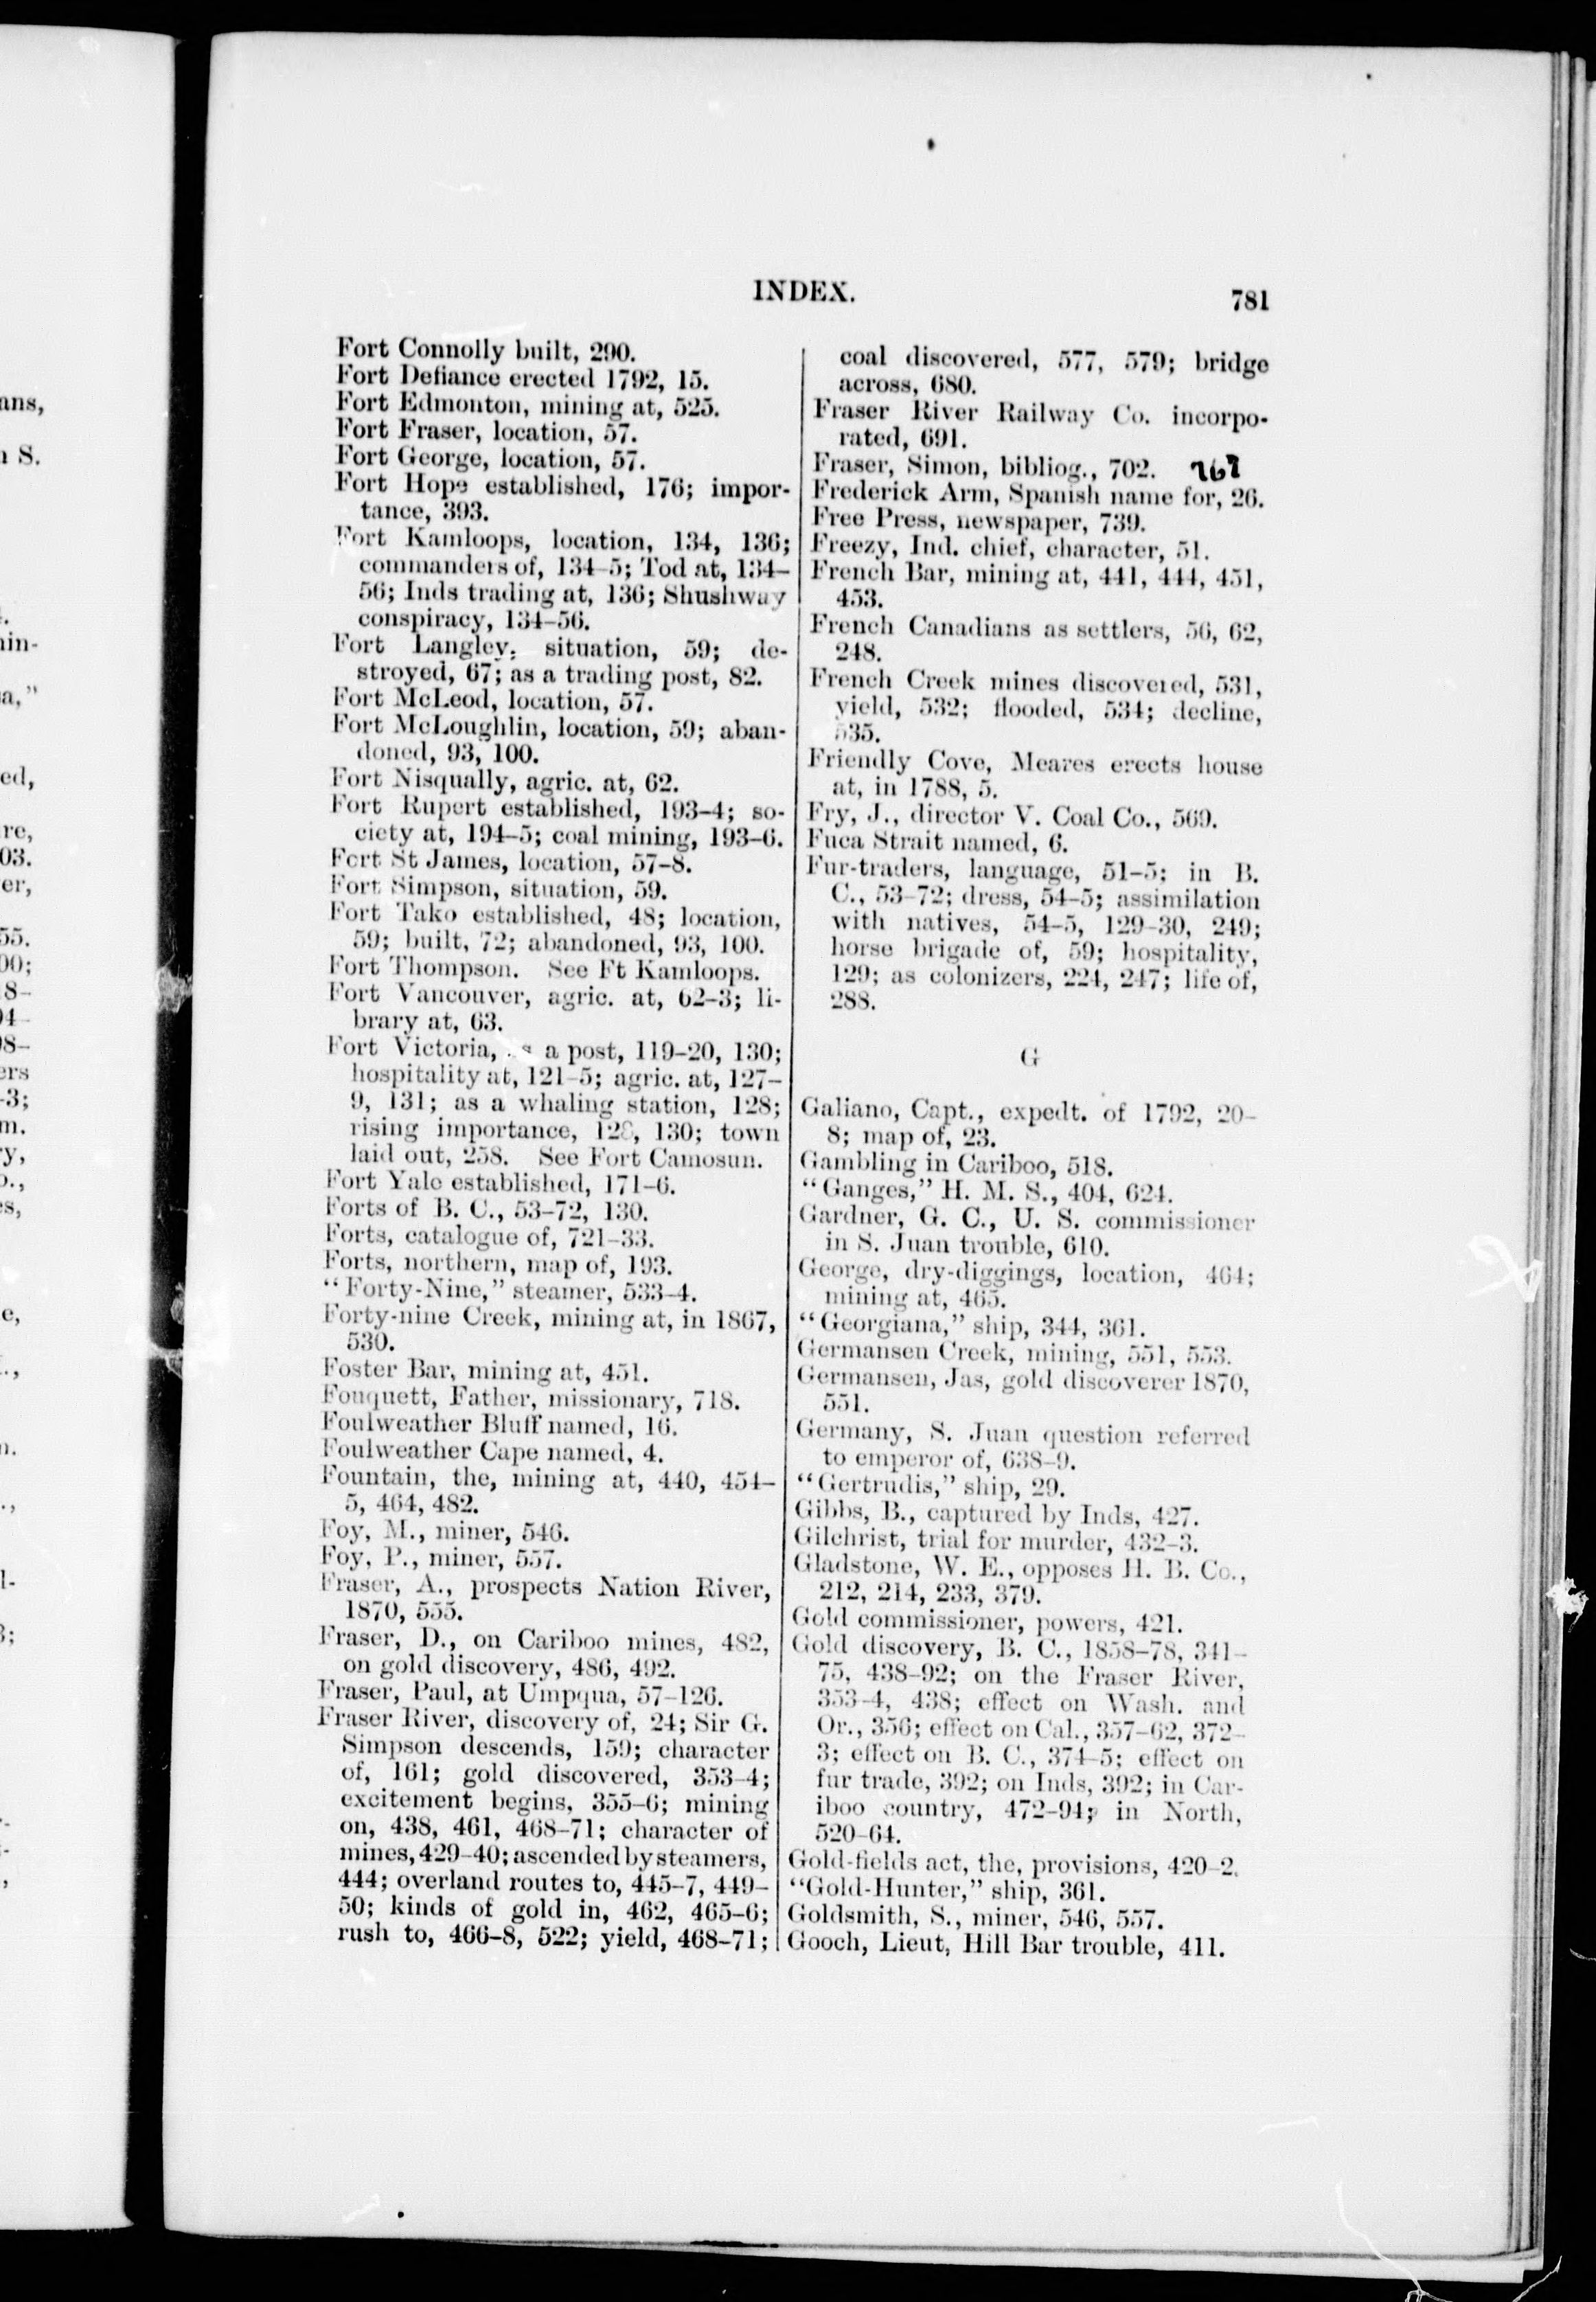 INDEX.
781
Fort Connolly built, 290.
Fort Defiance erected 1792, 15.
Fort Edmonton, mining at, 525.
Fort Fraser, location, 57.
Fort George, location, 57.
Fort Hope established, 176; impor-
tance, 393.
Fort Kamloops, location, 134, 136;
commanders of, 134-5; Tod at, 134-
56; Inds trading at, 136; Shushway
conspiracy, 134-56.
Fort Langley, situation, 59; de-
stroyed, 67; as a trading post, 82.
Fort McLeod, location, 57.
Fort McLoughlin, location, 59; aban-
doned, 93, 100.
Fort Nisqually, agric. at, 62.
Fort Rupert established, 193-4; so-
ciety at, 194-5; coal mining, 193-6.
Fort St James, location, 57-8.
Fort Simpson, situation, 59.
Fort Tako established, 48; location,
59; built, 72; abandoned, 93, 100.
Fort Thompson. See Ft Kamloops.
Fort Vancouver, agric. at, 62-3; li-
brary at, 63.
Fort Victoria, a post, 119-20, 130;
hospitality at, 121-5; agric. at, 127-
9, 131; as a whaling station, 128;
rising importance, 130; town
laid out, 258. See Fort Camosun.
Fort Yale established, 171-6.
Forts of B. C., 53-72, 130.
Forts, catalogue of, 721-33.
Forts, northern, map of, 193.
"Forty-Nine," steamer, 533-4.
Forty-nine Creek, mining at, in 1867,
530.
Foster Bar, mining at, 451.
Fouquett, Father, missionary, 718.
Foulweather Bluff named, 16.
Foulweather Cape named, 4.
Fountain, the, mining at, 440, 454-
5, 464, 482.
Foy, M., miner, 546.
Foy, P., miner, 557.
Fraser, A., prospects Nation River,
1870, 555.
Fraser, D., on Cariboo mines, 482,
on gold discovery, 486, 492.
Fraser, Paul, at Umpqua, 57-126.
Fraser River, discovery of, 24; Sir G.
Simpson descends, 159; character
of, 161; gold discovered, 353-4;
excitement begins, 355-6; mining
on, 438, 461, 468-71; character of
mines, 429-40; ascended by steamers,
444; overland routes to, 445-7, 449-
50; kinds of gold in, 462, 465-6;
rush to, 466-8, 522; yield, 468-71;
coal discovered, 577, 579; bridge
across, 680.
Fraser River Railway Co. incorpo-
rated, 691.
Fraser, Simon, bibliog., 702. 767
Frederick Arm, Spanish name for, 26.
Free Press, newspaper, 739.
Freezy, Ind. chief, character, 51.
French Bar, mining at, 441, 444, 451,
453.
French Canadians as settlers, 56, 62,
248.
French Creek mines discovered, 531,
yield, 532; flooded, 534; decline,
535.
Friendly Cove, Meares erects house
at, in 1788, 5.
Fry, J., director V. Coal Co., 569.
Fuca Strait named, 6.
Fur-traders, language, 51-5; in B.
C., 53-72; dress, 54-5; assimilation
with natives, 54-5, 129-30, 249;
horse brigade of, 59; hospitality,
129; as colonizers, 224, 247; life of,
288.
G
Galiano, Capt., expedt. of 1792, 20-
8; map of, 23.
Gambling in Cariboo, 518.
"Ganges," H. M. S., 404, 624.
Gardner, G. C., U. S. commissioner
in S. Juan trouble, 610.
George, dry-diggings, location, 464;
mining at, 465.
"Georgiana," ship, 344, 361.
Germansen Creek, mining, 551, 553.
Germansen, Jas, gold discoverer 1870,
551.
Germany, S. Juan question referred
to emperor of, 638-9.
"Gertrudis," ship, 29.
Gibbs, B., captured by Inds, 427.
Gilchrist, trial for murder, 432-3.
Gladstone, W. E., opposes H. B. Co.,
212, 214, 233, 379.
Gold commissioner, powers, 421.
Gold discovery, B. C., 1858-78, 341-
75, 438-92; on the Fraser River,
353-4, 438; effect on Wash. and
Or., 356; effect on Cal., 357-62, 372-
3; effect on B. C., 374-5; effect on
fur trade, 392; on Inds, 392; in Car-
iboo country, 472-94; in North,
520-64.
Gold-fields act, the, provisions, 420-2.
"Gold-Hunter," ship, 361.
Goldsmith, S., miner, 546, 557.
Gooch, Lieut, Hill Bar trouble, 411.